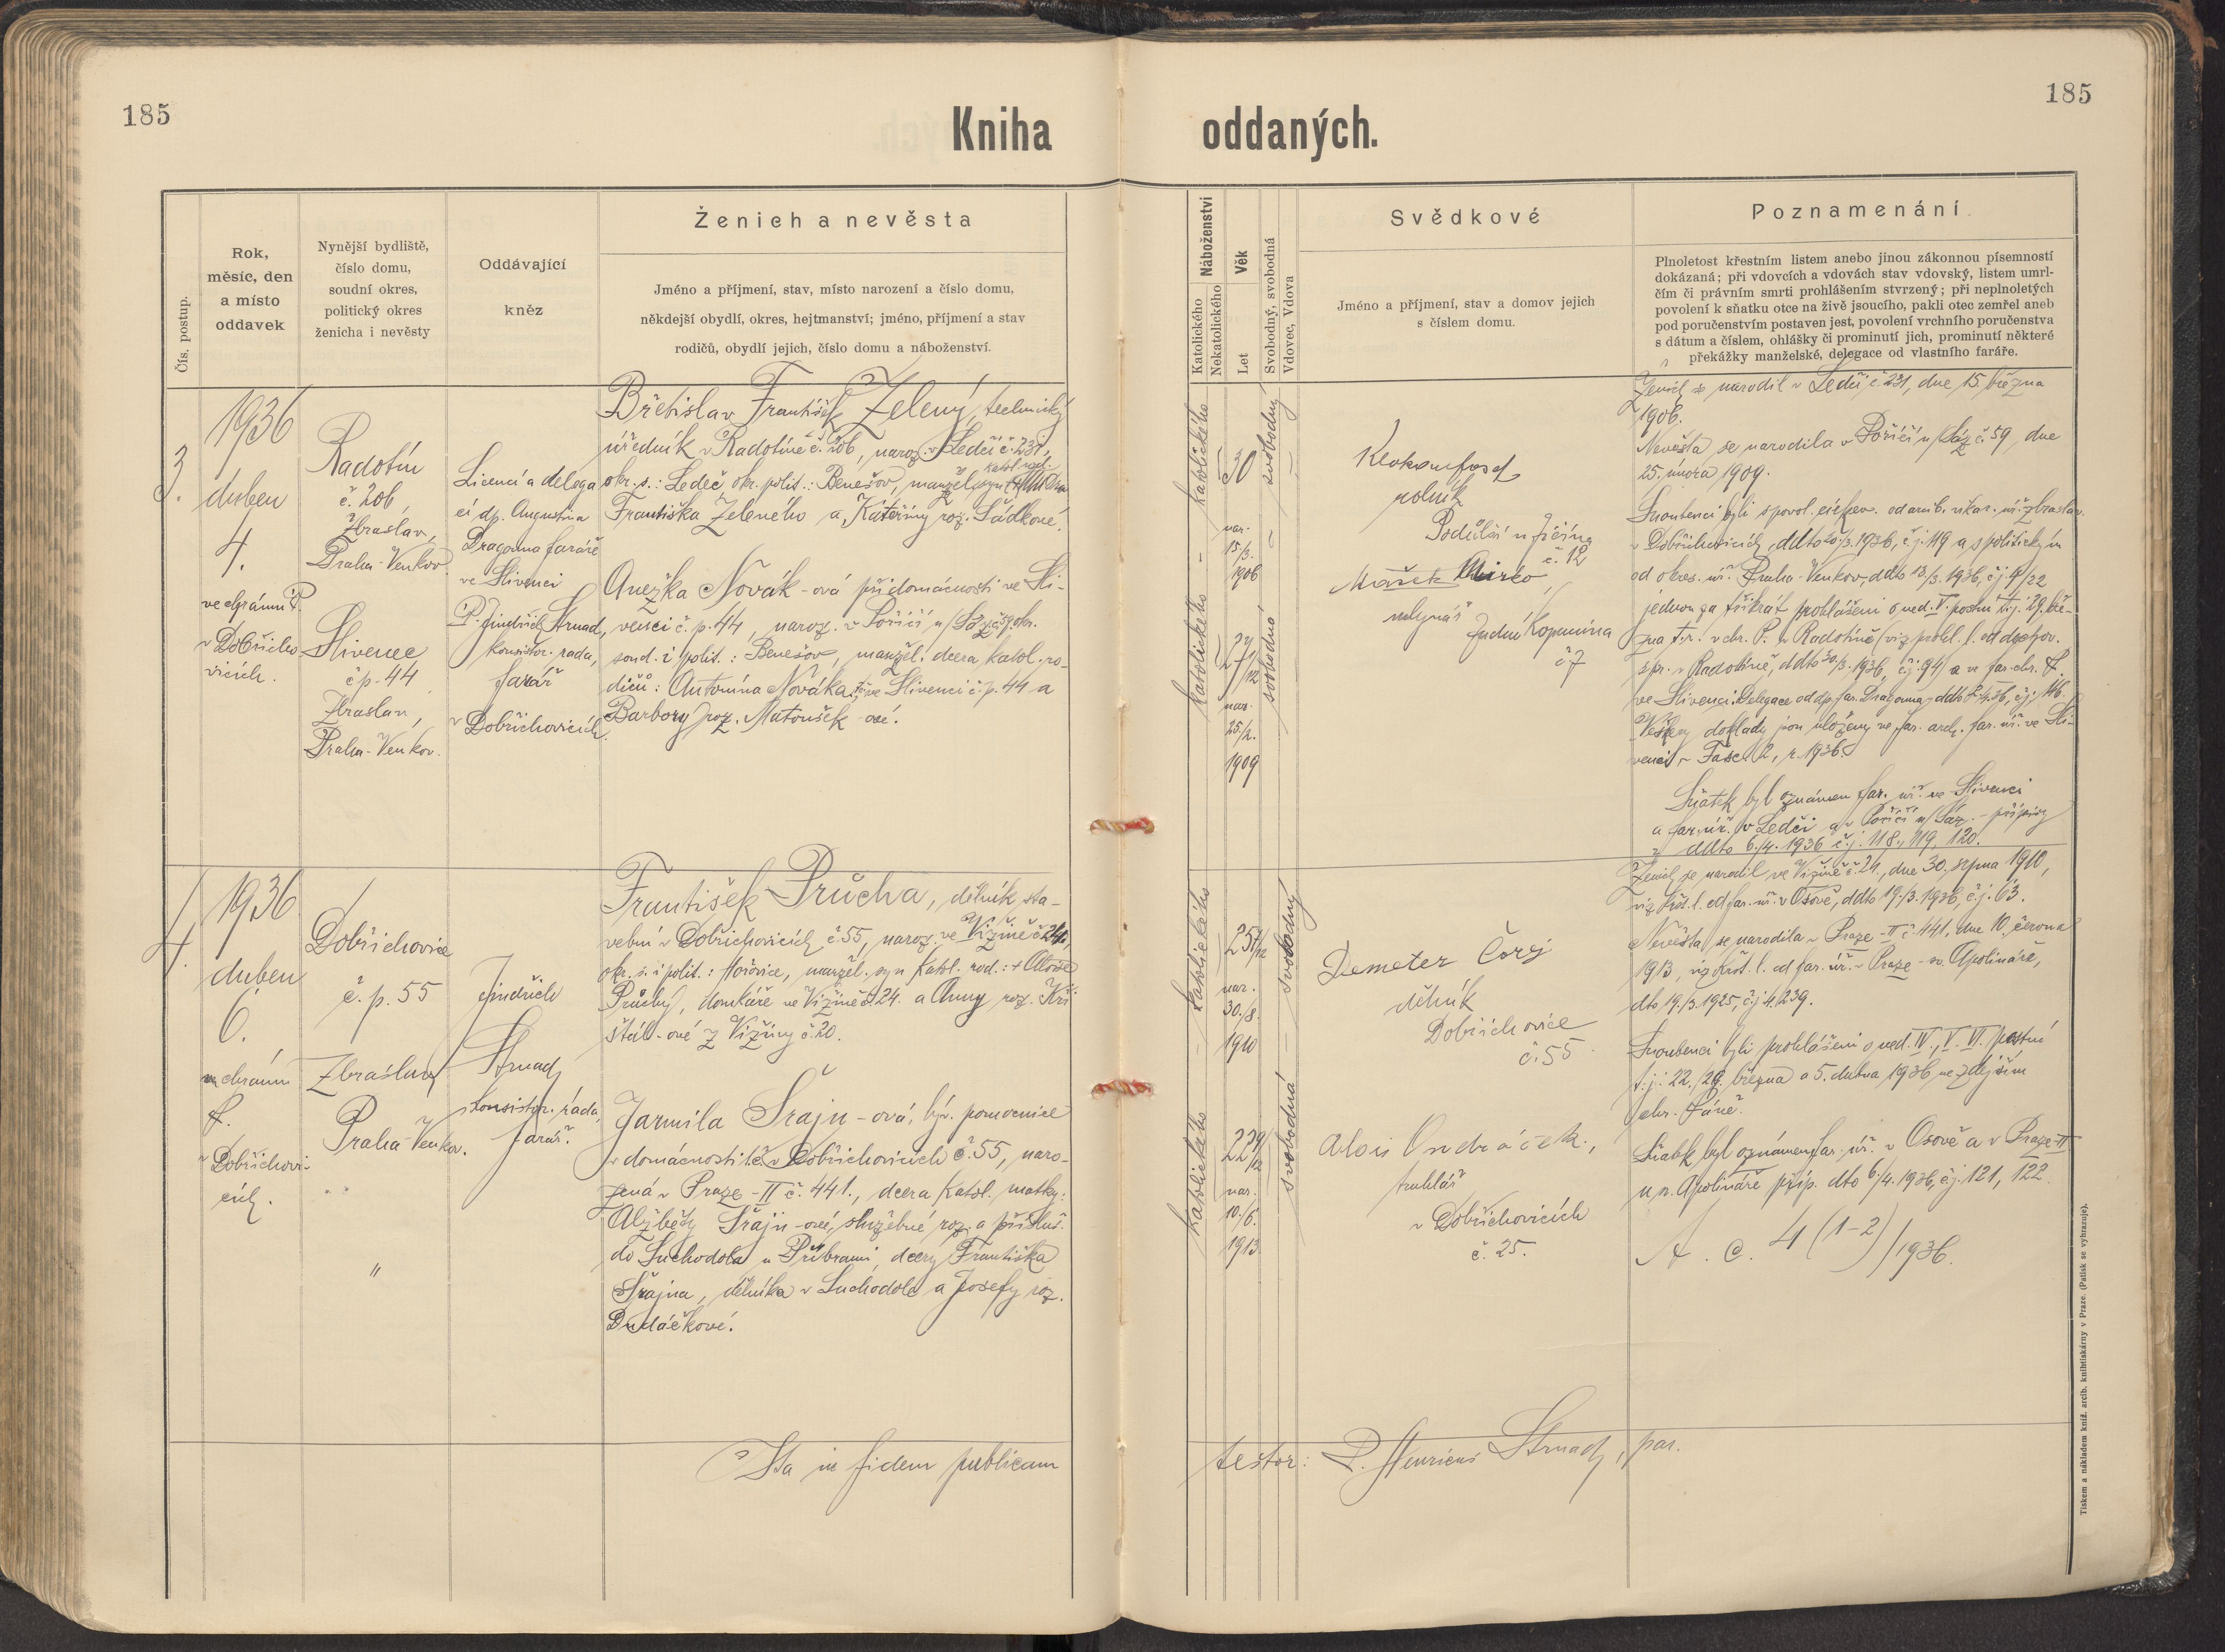 185
185
Kniha oddaných.
Čís. postup.
Rok,
měsíc, den
a místo
oddavek
Nynější bydliště,
číslo domu,
soudní okres,
politický okres
ženicha i nevěsty
Oddávající
kněz
Ženich a nevěsta
Jméno a příjmení, stav, místo narození a číslo domu,
někdejší obydlí, okres, hejtmanství; jméno, příjmení a stav
rodičů, obydlí jejich, číslo domu a náboženství.
Náboženství
Katolického
Nekatolického
Věk
Let
Svobodný, svobodná
Vdovec, Vdova
Svědkové
Jméno a příjmení, stav a domov jejich
s číslem domu.
Poznamenání
Plnoletost křestním listem anebo jinou zákonnou písemností
dokázaná; při vdovcích a vdovách stav vdovský, listem umrl-
čím či právním smrti prohlášením stvrzený; při neplnoletých
povolení k sňatku otce na živě jsoucího, pakli otec zemřel aneb
pod poručenstvím postaven jest, povolení vrchního poručenstva
s dátum a číslem, ohlášky či prominutí jich, prominutí některé
překážky manželské, delegace od vlastního faráře.
3.
1936
duben
4.
ve chrámu P.
v Dobřicho-
vicích.
Radotín
č. 206
Zbraslav,
Praha-Venkov
Slivenec
čp. 44
Zbraslav,
Praha-Venkov.
Licencí a delega
cí dp. Augustina
Dragouna faráře
ve Slivenci
P. Jindřich Strnad,
konsistor. rada,
farář
v Dobřichovicích
Břetislav František Zelený, technický
úředník v Radotíně č. 206, naroz. v Ledči č. 231,
okr. s.: Ledeč okr. polit.: Benešov, manžel. syn katol. rod.
Františka Zeleného a Kateřiny roz. Sádkové.
Anežka Novák-ová při domácnosti ve Sli-
venci č. p. 44, naroz. v Poříčí n/Sáz. č. 59 okr.
soud. i polit.: Benešov, manžel. dcera katol. ro-
dičů: Antonína Nováka ve Slivenci č. p. 44 a
Barbory roz. Matoušek-ové.
katolického
katolického
30
nar.
15/3.
1906
27 1/12
nar.
25/2.
1909
svobodný
svobodná
rolník
č. 12
Mašek
mlynář
Zadní Kopanina
č 7
Ženich se narodil v Ledči č. 231, dne 15. března
1906.
Nevěsta se narodila v Poříčí n/Sáz č. 59, dne
25. února 1909.
Snoubenci byli s povol. církev. od arcib. vikar. úř. zbraslav.
v Dobřichovicích, ddto 20/3. 1936, č. j. 119 a s politickým
od okres. úř. Praha-Venkov, ddto 13/3. 1936, č. j. 9/22
jednou za třikrát prohlášeni o ned. V. postní t. j. 29. bře-
zna t. r. v chr. P. v Radotíně (viz prohl. l. od duchov.
spr. v Radotíně, ddto 30/3. 1936, č. j. 94) a ve far. chr. P.
ve Slivenci. Delegace od dp. far. Dragouna, ddto 2/4. 36, č. j. 146.
Veškery doklady jsou uloženy ve far. arch. far. úř. ve Sli-
venci - Fasc. 2, r. 1936.
Sňatek byl oznámen far. úř. ve Slivenci
a far. úř. v Ledči a v Poříčí n/Sáz. - přípisy
z ddto 6./4. 1936 č. j. 118., 119, 120.
4.
1936
duben
6.
ve chrámu
P.
v Dobřichovi-
cích.
Dobřichovice
č. p. 55
Zbraslav
Praha-Venkov.
"
Jindřich
Strnad
konsistor. rada,
farář.
František Průcha, dělník sta-
vební v Dobřichovicích č. 55, naroz. ve Vižině č. 24.,
okr. s. i polit.: Hořovice, manžel. syn katol. rod.: + Aloise
Průchy, domkáře ve Vižině č. 24. a Anny roz. Kři-
štál-ové z Vižiny č. 20.
Jarmila Šrajn-ová, býv. pomocnice
v domácnosti též v Dobřichovicích č. 55, naro-
zená v Praze-II č. 441., dcera katol. matky:
Alžběty Šrajn-ové, služebné roz. a přísluš.
do Suchodola u Příbrami, dcery Františka
Šrajna, dělníka v Suchodole a Josefy roz.
Dudáčkové.
katolického
katolického
25 7/12
nar.
30./8.
1910
22 9/12
nar.
10./6.
1913
svobodný
svobodná
Demeter Čorej
dělník
Dobřichovice
č. 55
Alois Ondráček,
truhlář
v Dobřichovicích
č. 25.
Ženich se narodil ve Vižině č. 24., dne 30. srpna 1910,
viz křst. l. od far. úř. v Osově, ddto 19./3. 1936, č. j. 63.
Nevěsta se narodila v Praze-II č. 441, dne 10. června
1913, viz křst. l. od far. úř. v Praze - sv. Apolináře,
dto 19./3. 1925, č. j. 4.239.
Snoubenci byli prohlášeni o ned. IV., V. VI. postní
t. j.: 22., 29. března a 5. dubna 1936 ve zdejším
chr. Páně.
Sňatek byl oznámen far. úř. v Osově a v Praze-II
u sv. Apolináře příp. dto 6./4. 1936, č. j. 121, 122.
A. C. 4 (1-2)/1936.
Ita in fidem publicam
testor: P. Henricus Strnad, par.
Tiskem a nákladem kníž. arcib. knihtiskárny v Praze. (Patisk se vyhrazuje).